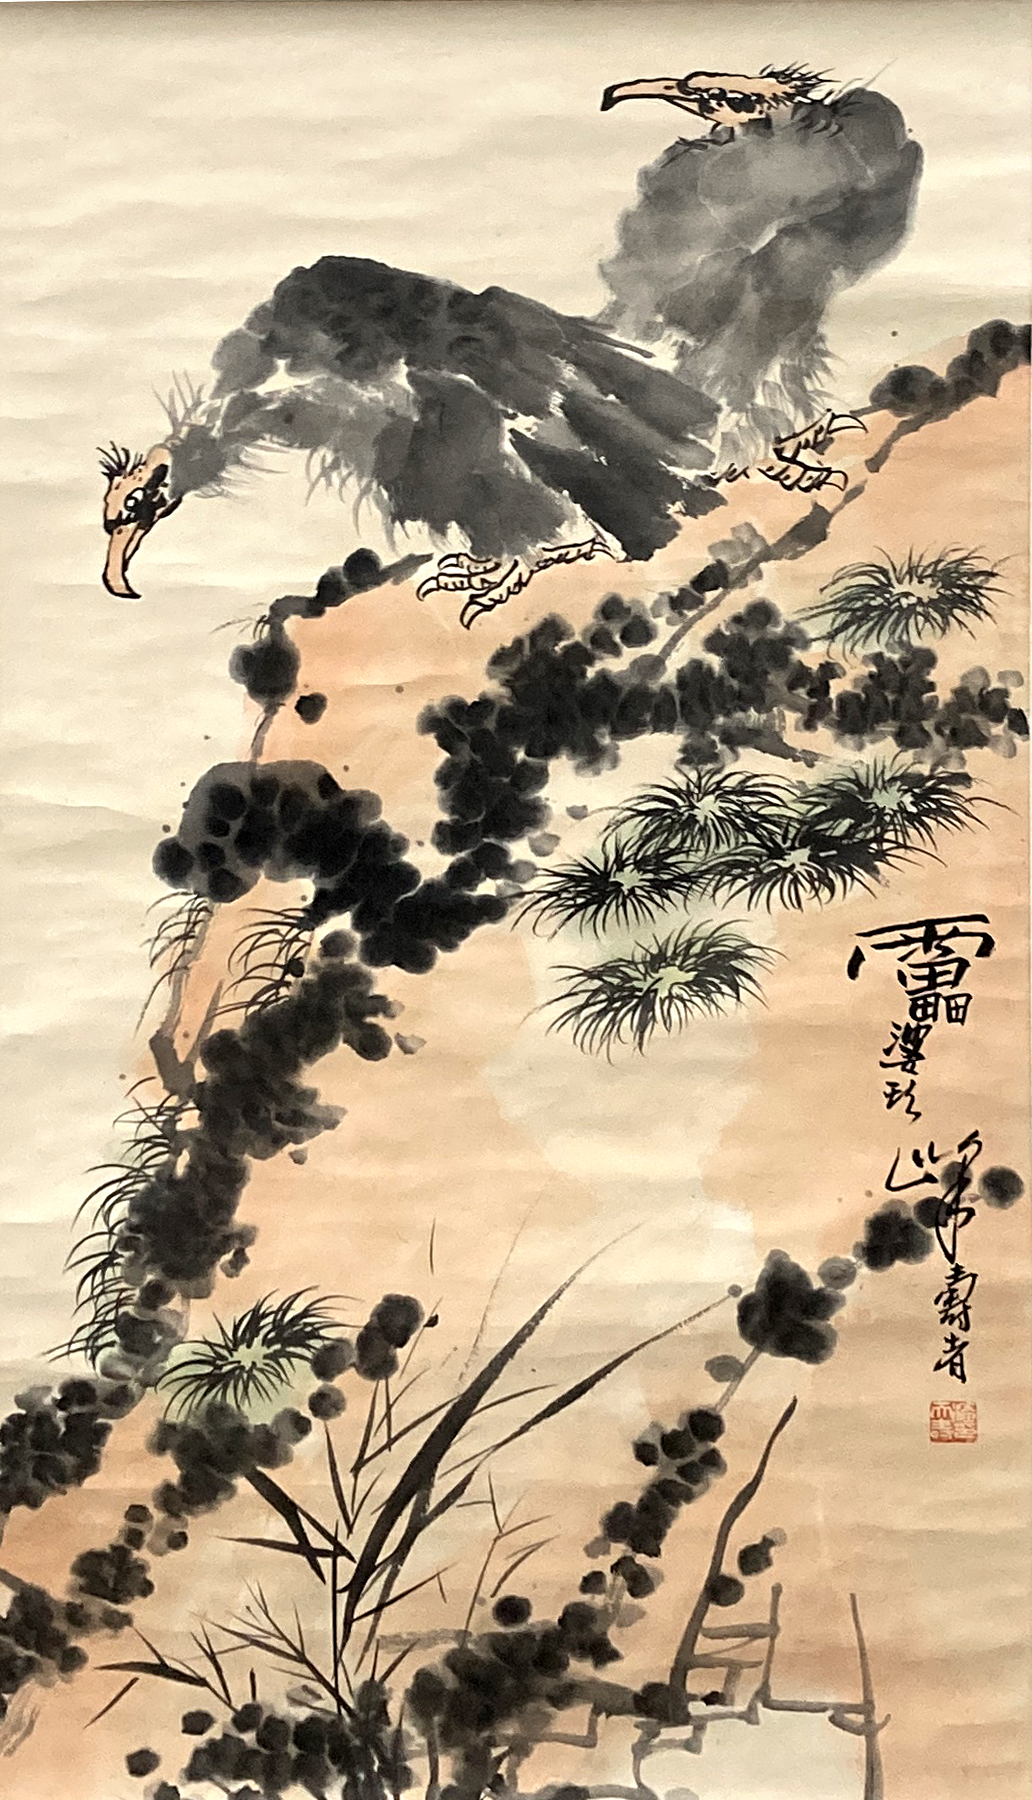 靁婆頭峰壽者